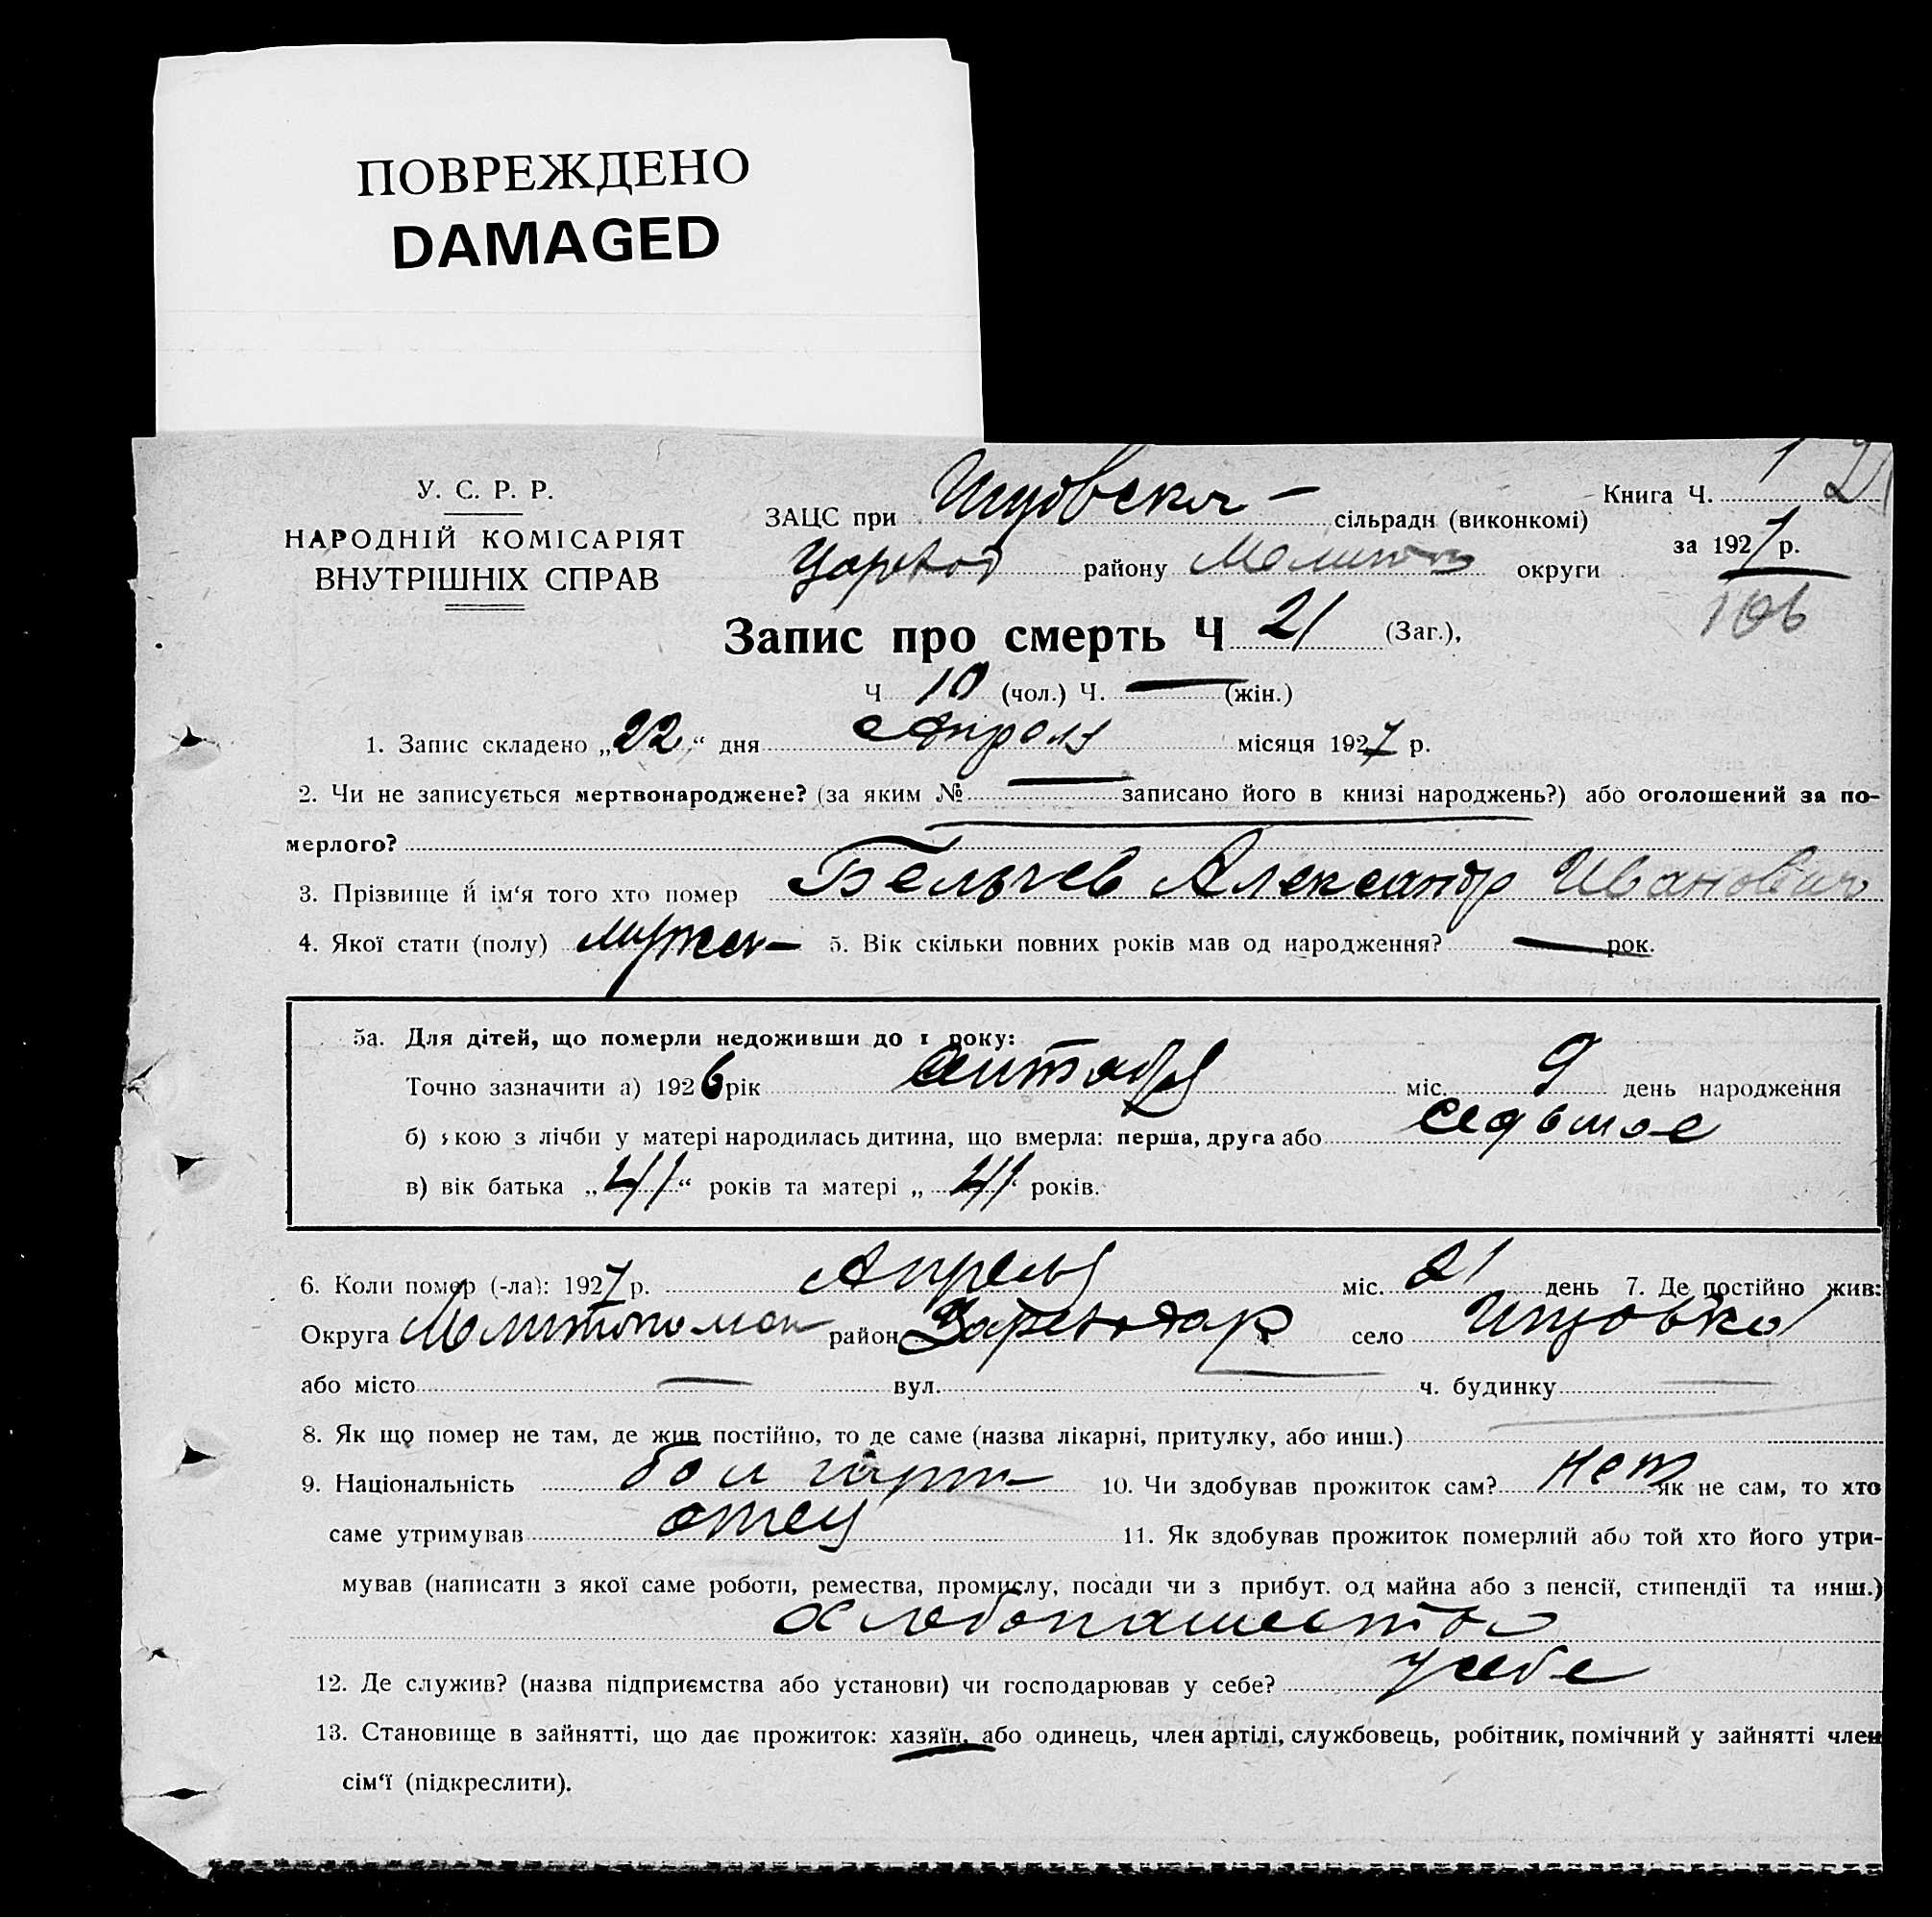 ПОВРЕЖДЕНО
DAMAGED
У. С. Р. Р.
НАРОДНІЙ КОМІСАРІЯТ
ВНУТРІШНІХ СПРАВ
ЗАЦС при сільради (виконкомі)
району округи
Книга Ч.
за 1927 р.
106
Запис про смерть Ч 21 (Заг.),
Ч 10 (чол.) Ч. — (жін.)
1. Запис складено „22“ дня Апреля місяця 1927 р.
2. Чи не записується мертвонароджене? (за яким № — записано його в книзі народжень?) або оголошений за по-
мерлого?
3. Прізвище й ім‘я того хто помер Бельчев Александр Иванович
4. Якої стати (полу) мужск— 5. Вік скільки повних років мав од народження? — рок.
5а. Для дітей, що померли недоживши до 1 року:
Точно зазначити а) 1926 рік міс. 9 день народження
б) якою з лічби у матері народилась дитина, що вмерла: перша, друга або седьмое
в) вік батька „41“ років та матері „41“ років.
6. Коли помер (-ла): 1927 р. Апрель міс. 21 день 7. Де постійно жив:
Округа район село
або місто — вул. — ч. будинку —
8. Як що помер не там, де жив постійно, то де саме (назва лікарні, притулку, або инш.)
9. Національність 10. Чи здобував прожиток сам? нет як не сам, то хто
саме утримував отец 11. Як здобував прожиток померлий або той хто його утри-
мував (написати з якої саме роботи, ремества, промислу, посади чи з прибут. од майна або з пенсії, стипендії та инш.)
хлебопашество
12. Де служив? (назва підприємства або установи) чи господарював у себе? у себе
13. Становище в зайнятті, що дає прожиток: хазяїн, або одинець, член артілі, службовець, робітник, помічний у зайнятті член
сім‘ї (підкреслити).